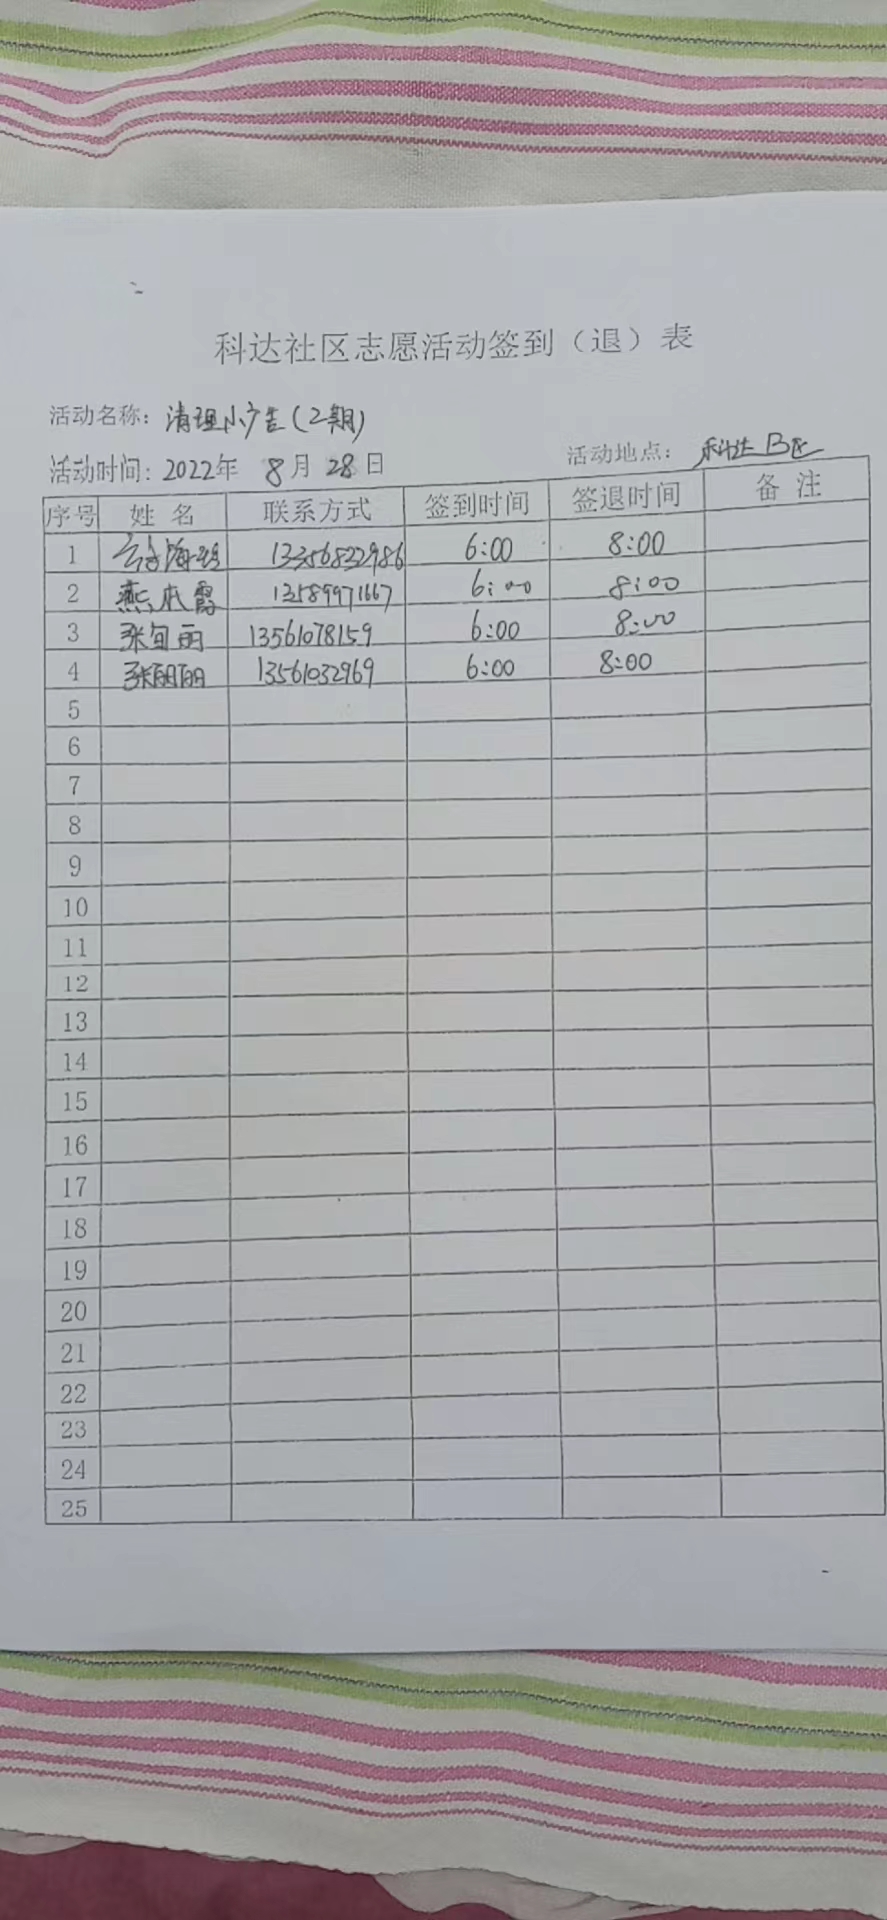 科达社区志愿活动签到（退）表
活动名称：清理小广告(2期)
活动时间：2022年 8月 28日 活动地点：科达B区
序号 姓 名 联系方式 签到时间 签退时间 备 注
1 13356832986 6:00 8:00
2 燕本霞 13589971667 6:00 8:00
3 张旬丽 13561078159 6:00 8:00
4 张丽丽 13561032969 6:00 8:00
5
6
7
8
9
10
11
12
13
14
15
16
17
18
19
20
21
22
23
24
25